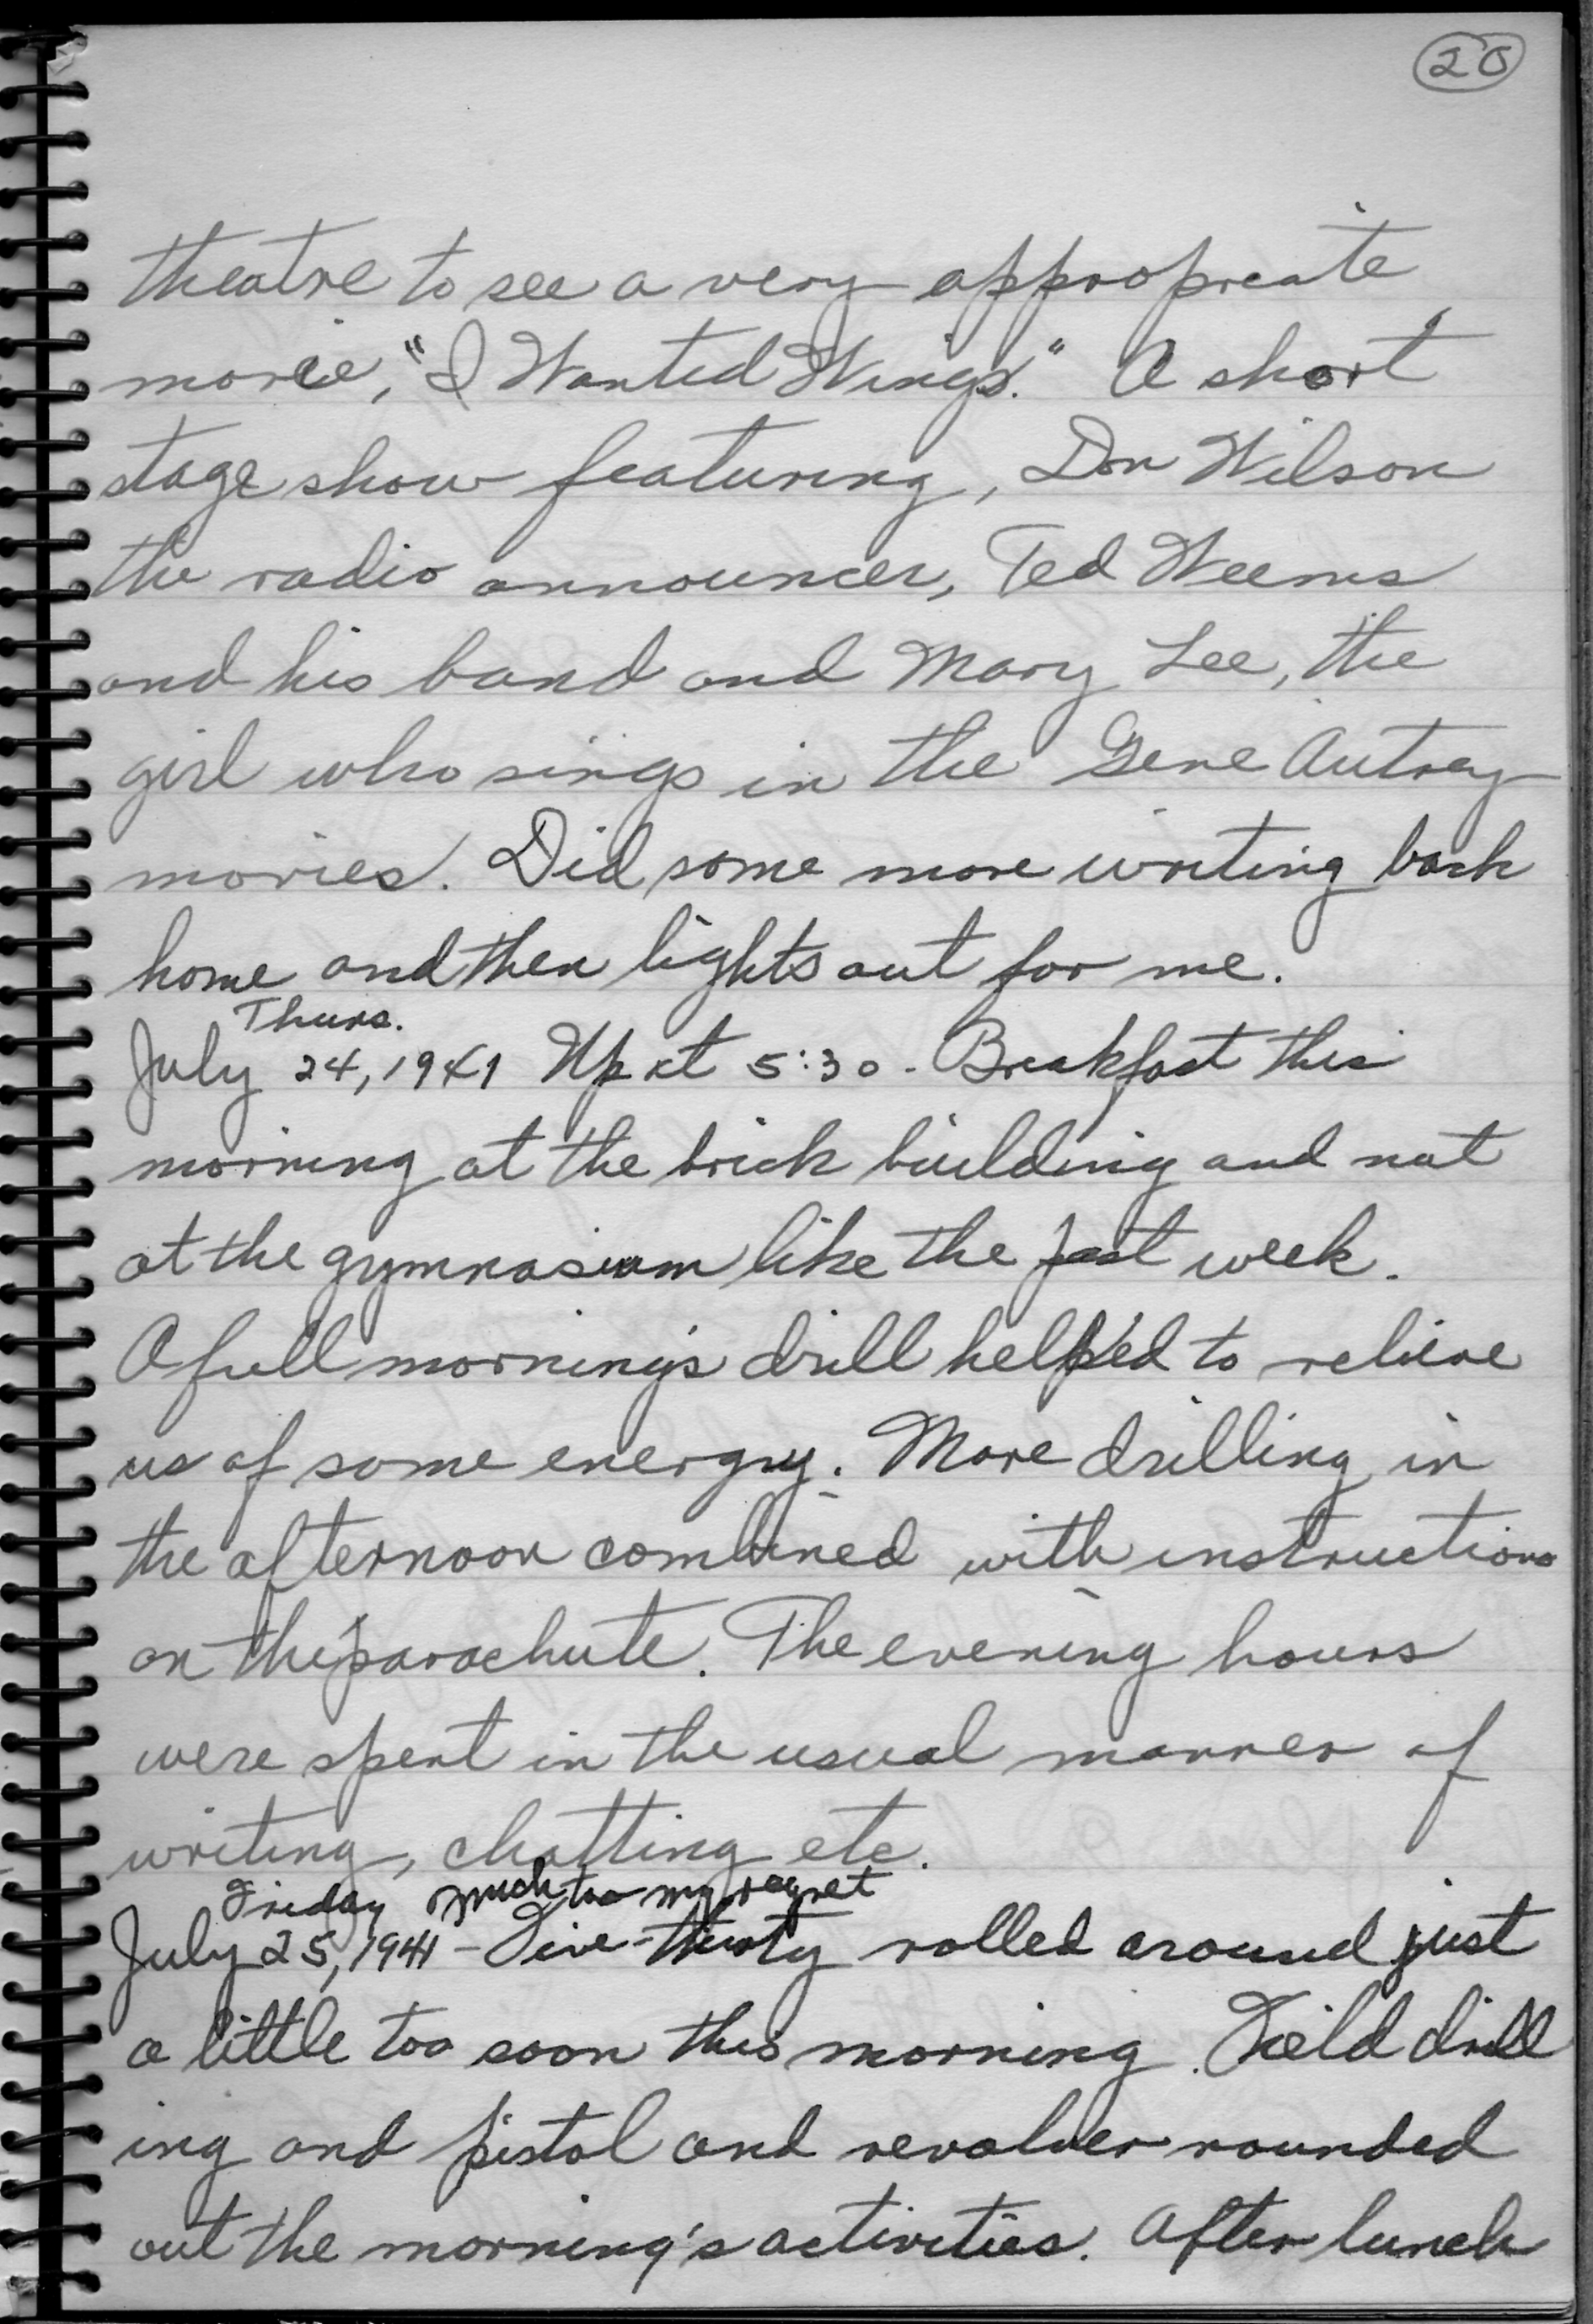 20
theatre to see a very appropreate
movie, "I Wanted Wings." A short
stage show featuring, Don Wilson
the radio announcer, Ted Weems
and his band and Mary Lee, the
girl who sings in the Gene Autrey
movies. Did some more writing back
home and then lights out for me.
Thurs.
July 24, 1941 Up at 5:30. Breakfast this
morning at the brick building and not
at the gymnasium like the past week.
A full morning's drill help'ed to relieve
us of some energy. More drilling in
the afternoon combined with instructions
on the parachute. The evening hours
were spent in the usual manner of
writing, chatting etc.
Friday much too my regret
July 25, 1941 - Five-thirty rolled around just
a little too soon this morning. Feild drill
ing and pistol and revolver rounded
out the morning's activities. After lunch